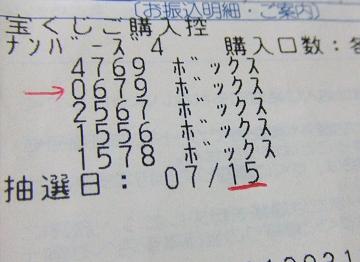 （お振込明細・ご案内）
宝くじご購入控
ﾅﾝﾊﾞｰｽﾞ4 購入口数：各
4769 ﾎﾞｯｸｽ
0679 ﾎﾞｯｸｽ
2567 ﾎﾞｯｸｽ
1556 ﾎﾞｯｸｽ
1578 ﾎﾞｯｸｽ
抽選日： 07/15